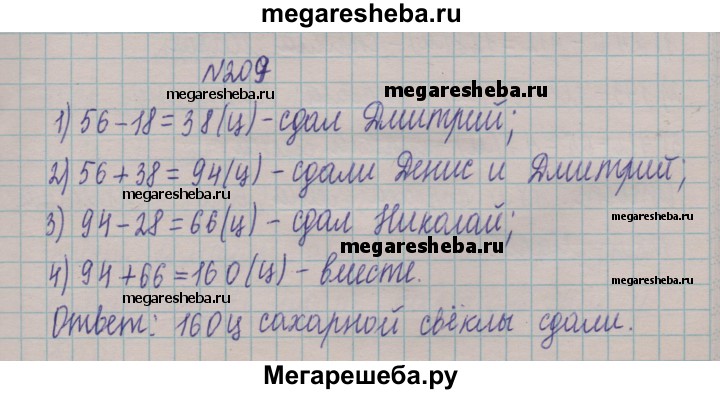 megaresheba.ru
№209
megaresheba.ru
megaresheba.ru
1) 56-18=38(ц)-сдал Дмитрий;
2) 56+38=94(ц)-сдали Денис и Дмитрий;
megaresheba.ru
megaresheba.ru
3) 94-28=66(ц)-сдал Николай;
megaresheba.ru
megaresheba.ru
4) 94+66=160(ц)-вместе.
megaresheba.ru
megaresheba.ru
Ответ: 160ц сахарной свёклы сдали.
Мегарешеба.ру